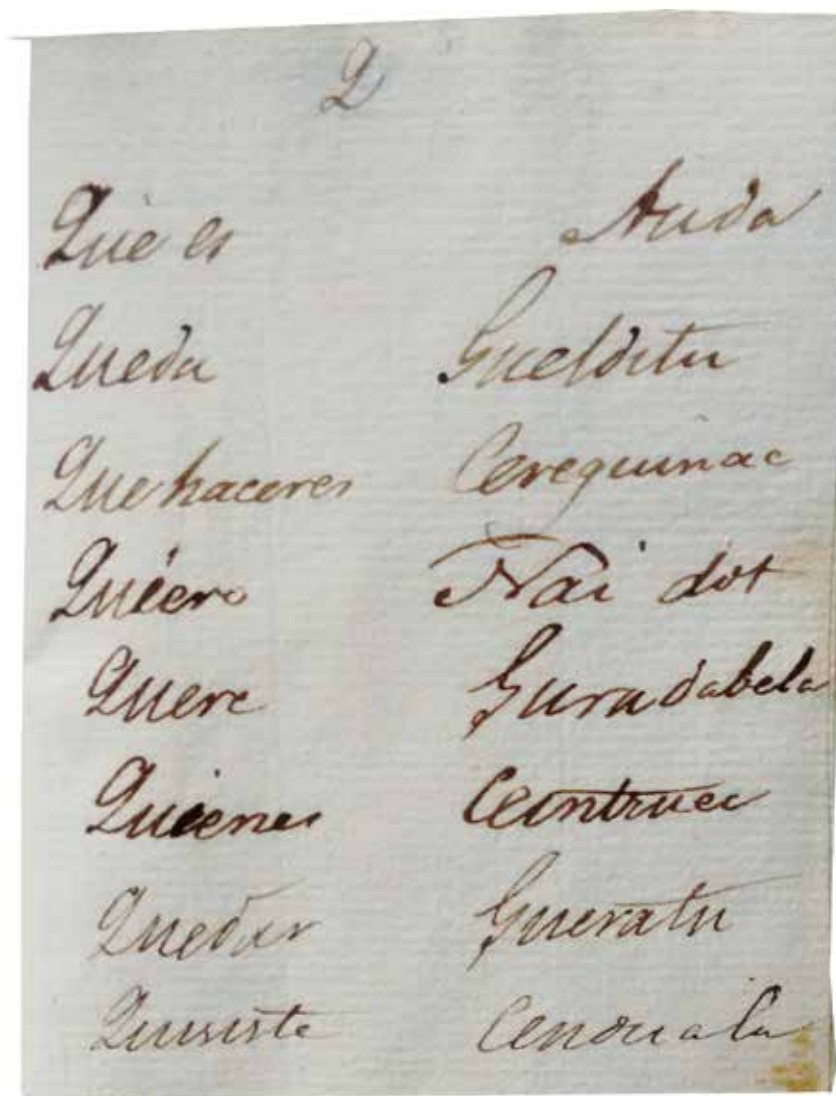 Q
Que es Auda
Queda Guelditu
Que haceres Cerequinac
Quiero Nai dot
Quere Guradabela
Quienes Ceintruec
Quedar Gueratu
Quisiste Cenduala